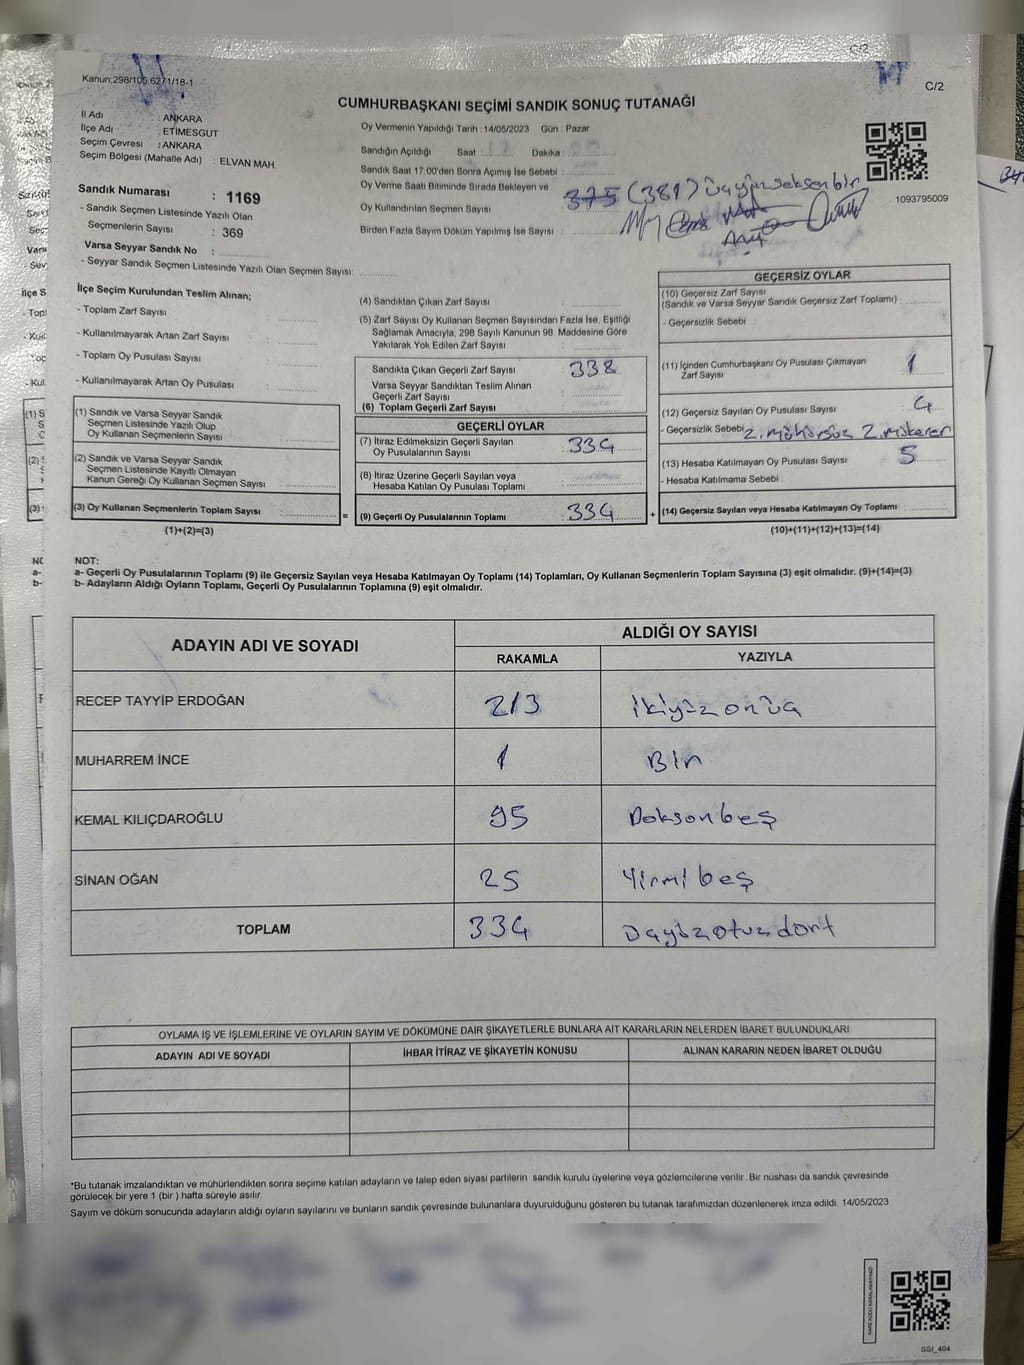 C/2
Kanun:298/105,6271/18-1
C/2
CUMHURBAŞKANI SEÇİMİ SANDIK SONUÇ TUTANAĞI
İl Adı : ANKARA
İlçe Adı : ETİMESGUT
Seçim Çevresi : ANKARA
Seçim Bölgesi (Mahalle Adı) : ELVAN MAH.
Oy Vermenin Yapıldığı Tarih : 14/05/2023 Gün : Pazar
Sandığın Açıldığı Saat : Dakika :
Sandık Saat 17.00'den Sonra Açımış İse Sebebi :
Oy Verme Saati Bitiminde Sırada Bekleyen ve
Oy Kullandırılan Seçmen Sayısı
375 (381) üçyüzseksenbir
Birden Fazla Sayım Döküm Yapılmış İse Sayısı :
1093795009
Sandık Numarası : 1169
- Sandık Seçmen Listesinde Yazılı Olan
Seçmenlerin Sayısı : 369
Varsa Seyyar Sandık No :
- Seyyar Sandık Seçmen Listesinde Yazılı Olan Seçmen Sayısı:
İlçe Seçim Kurulundan Teslim Alınan;
- Toplam Zarf Sayısı :
- Kullanılmayarak Artan Zarf Sayısı :
- Toplam Oy Pusulası Sayısı :
- Kullanılmayarak Artan Oy Pusulası :
(1) Sandık ve Varsa Seyyar Sandık
Seçmen Listesinde Yazılı Olup
Oy Kullanan Seçmenlerin Sayısı :
(2) Sandık ve Varsa Seyyar Sandık
Seçmen Listesinde Kayıtlı Olmayan
Kanun Gereği Oy Kullanan Seçmen Sayısı :
(3) Oy Kullanan Seçmenlerin Toplam Sayısı :
(1)+(2)=(3)
(4) Sandıktan Çıkan Zarf Sayısı :
(5) Zarf Sayısı Oy Kullanan Seçmen Sayısından Fazla İse, Eşitliği
Sağlamak Amacıyla, 298 Sayılı Kanunun 98. Maddesine Göre
Yakılarak Yok Edilen Zarf Sayısı :
Sandıkta Çıkan Geçerli Zarf Sayısı : 338
Varsa Seyyar Sandıktan Teslim Alınan
Geçerli Zarf Sayısı :
(6) Toplam Geçerli Zarf Sayısı :
GEÇERLİ OYLAR
(7) İtiraz Edilmeksizin Geçerli Sayılan
Oy Pusulalarının Sayısı : 334
(8) İtiraz Üzerine Geçerli Sayılan veya
Hesaba Katılan Oy Pusulası Toplamı :
= (9) Geçerli Oy Pusulalarının Toplamı : 334 +
GEÇERSİZ OYLAR
(10) Geçersiz Zarf Sayısı
(Sandık ve Varsa Seyyar Sandık Geçersiz Zarf Toplamı) :
- Geçersizlik Sebebi :
(11) İçinden Cumhurbaşkanı Oy Pusulası Çıkmayan
Zarf Sayısı : 1
(12) Geçersiz Sayılan Oy Pusulası Sayısı : 4
- Geçersizlik Sebebi 2. mühürsüz 2. mükerer
(13) Hesaba Katılmayan Oy Pusulası Sayısı : 5
- Hesaba Katılmama Sebebi :
(14) Geçersiz Sayılan veya Hesaba Katılmayan Oy Toplamı :
(10)+(11)+(12)+(13)=(14)
NOT:
a- Geçerli Oy Pusulalarının Toplamı (9) ile Geçersiz Sayılan veya Hesaba Katılmayan Oy Toplamı (14) Toplamları, Oy Kullanan Seçmenlerin Toplam Sayısına (3) eşit olmalıdır. (9)+(14)=(3)
b- Adayların Aldığı Oyların Toplamı, Geçerli Oy Pusulalarının Toplamına (9) eşit olmalıdır.
ADAYIN ADI VE SOYADI
ALDIĞI OY SAYISI
RAKAMLA YAZIYLA
RECEP TAYYİP ERDOĞAN 213 ikiyüzonüç
MUHARREM İNCE 1 Bir
KEMAL KILIÇDAROĞLU 95 Doksanbeş
SİNAN OĞAN 25 Yirmibeş
TOPLAM 334 üçyüzotuzdört
OYLAMA İŞ VE İŞLEMLERİNE VE OYLARIN SAYIM VE DÖKÜMÜNE DAİR ŞİKAYETLERLE BUNLARA AİT KARARLARIN NELERDEN İBARET BULUNDUKLARI
ADAYIN ADI VE SOYADI İHBAR İTİRAZ VE ŞİKAYETİN KONUSU ALINAN KARARIN NEDEN İBARET OLDUĞU
*Bu tutanak imzalandıktan ve mühürlendikten sonra seçime katılan adayların ve talep eden siyasi partilerin sandık kurulu üyelerine veya gözlemcilerine verilir. Bir nüshası da sandık çevresinde
görülecek bir yere 1 (bir ) hafta süreyle asılır.
Sayım ve döküm sonucunda adayların aldığı oyların sayılarını ve bunların sandık çevresinde bulunanlara duyurulduğunu gösteren bu tutanak tarafımızdan düzenlenerek imza edildi. 14/05/2023
KARE KODU KARALAMAYINIZ!
SSI_404